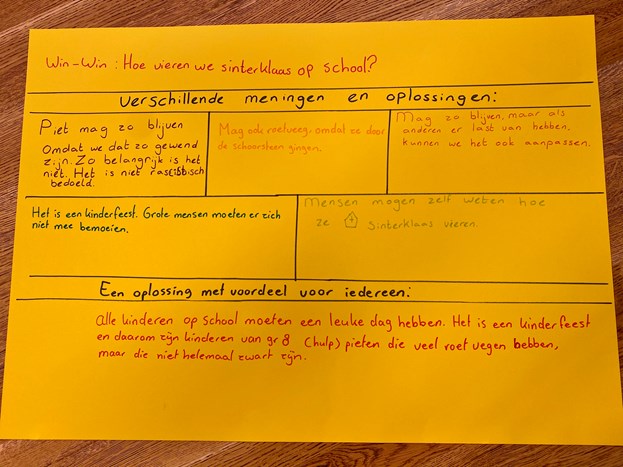 Win-Win: Hoe vieren we sinterklaas op school?
Verschillende meningen en oplossingen:
Piet mag zo blijven
Omdat we dat zo gewend
zijn. Zo belangrijk is het
niet. Het is niet rascistisch
bedoeld.
Mag ook roetveeg. omdat ze door
de schoorsteen gingen.
Mag zo blijven, maar als
anderen er last van hebben,
kunnen we het ook aanpassen.
Het is een kinderfeest. Grote mensen moeten er zich
niet mee bemoeien.
Mensen mogen zelf weten hoe
ze sinterklaas vieren.
Een oplossing met voordeel voor iedereen:
Alle kinderen op school moeten een leuke dag hebben. Het is een kinderfeest
en daarom zijn kinderen van gr 8 (hulp) pieten die veel roet vegen hebben,
maar die niet helemaal zwart zijn.